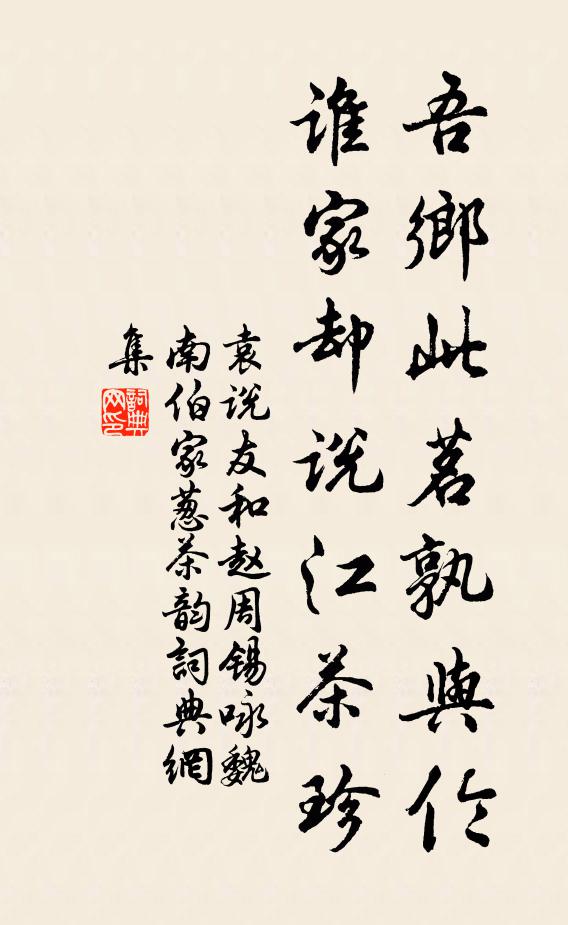 吾鄉此茗孰與倫
誰家却說江茶珍
袁说友和赵周锡咏魏
南伯家蔥茶韵詞典網
集
詞典网印